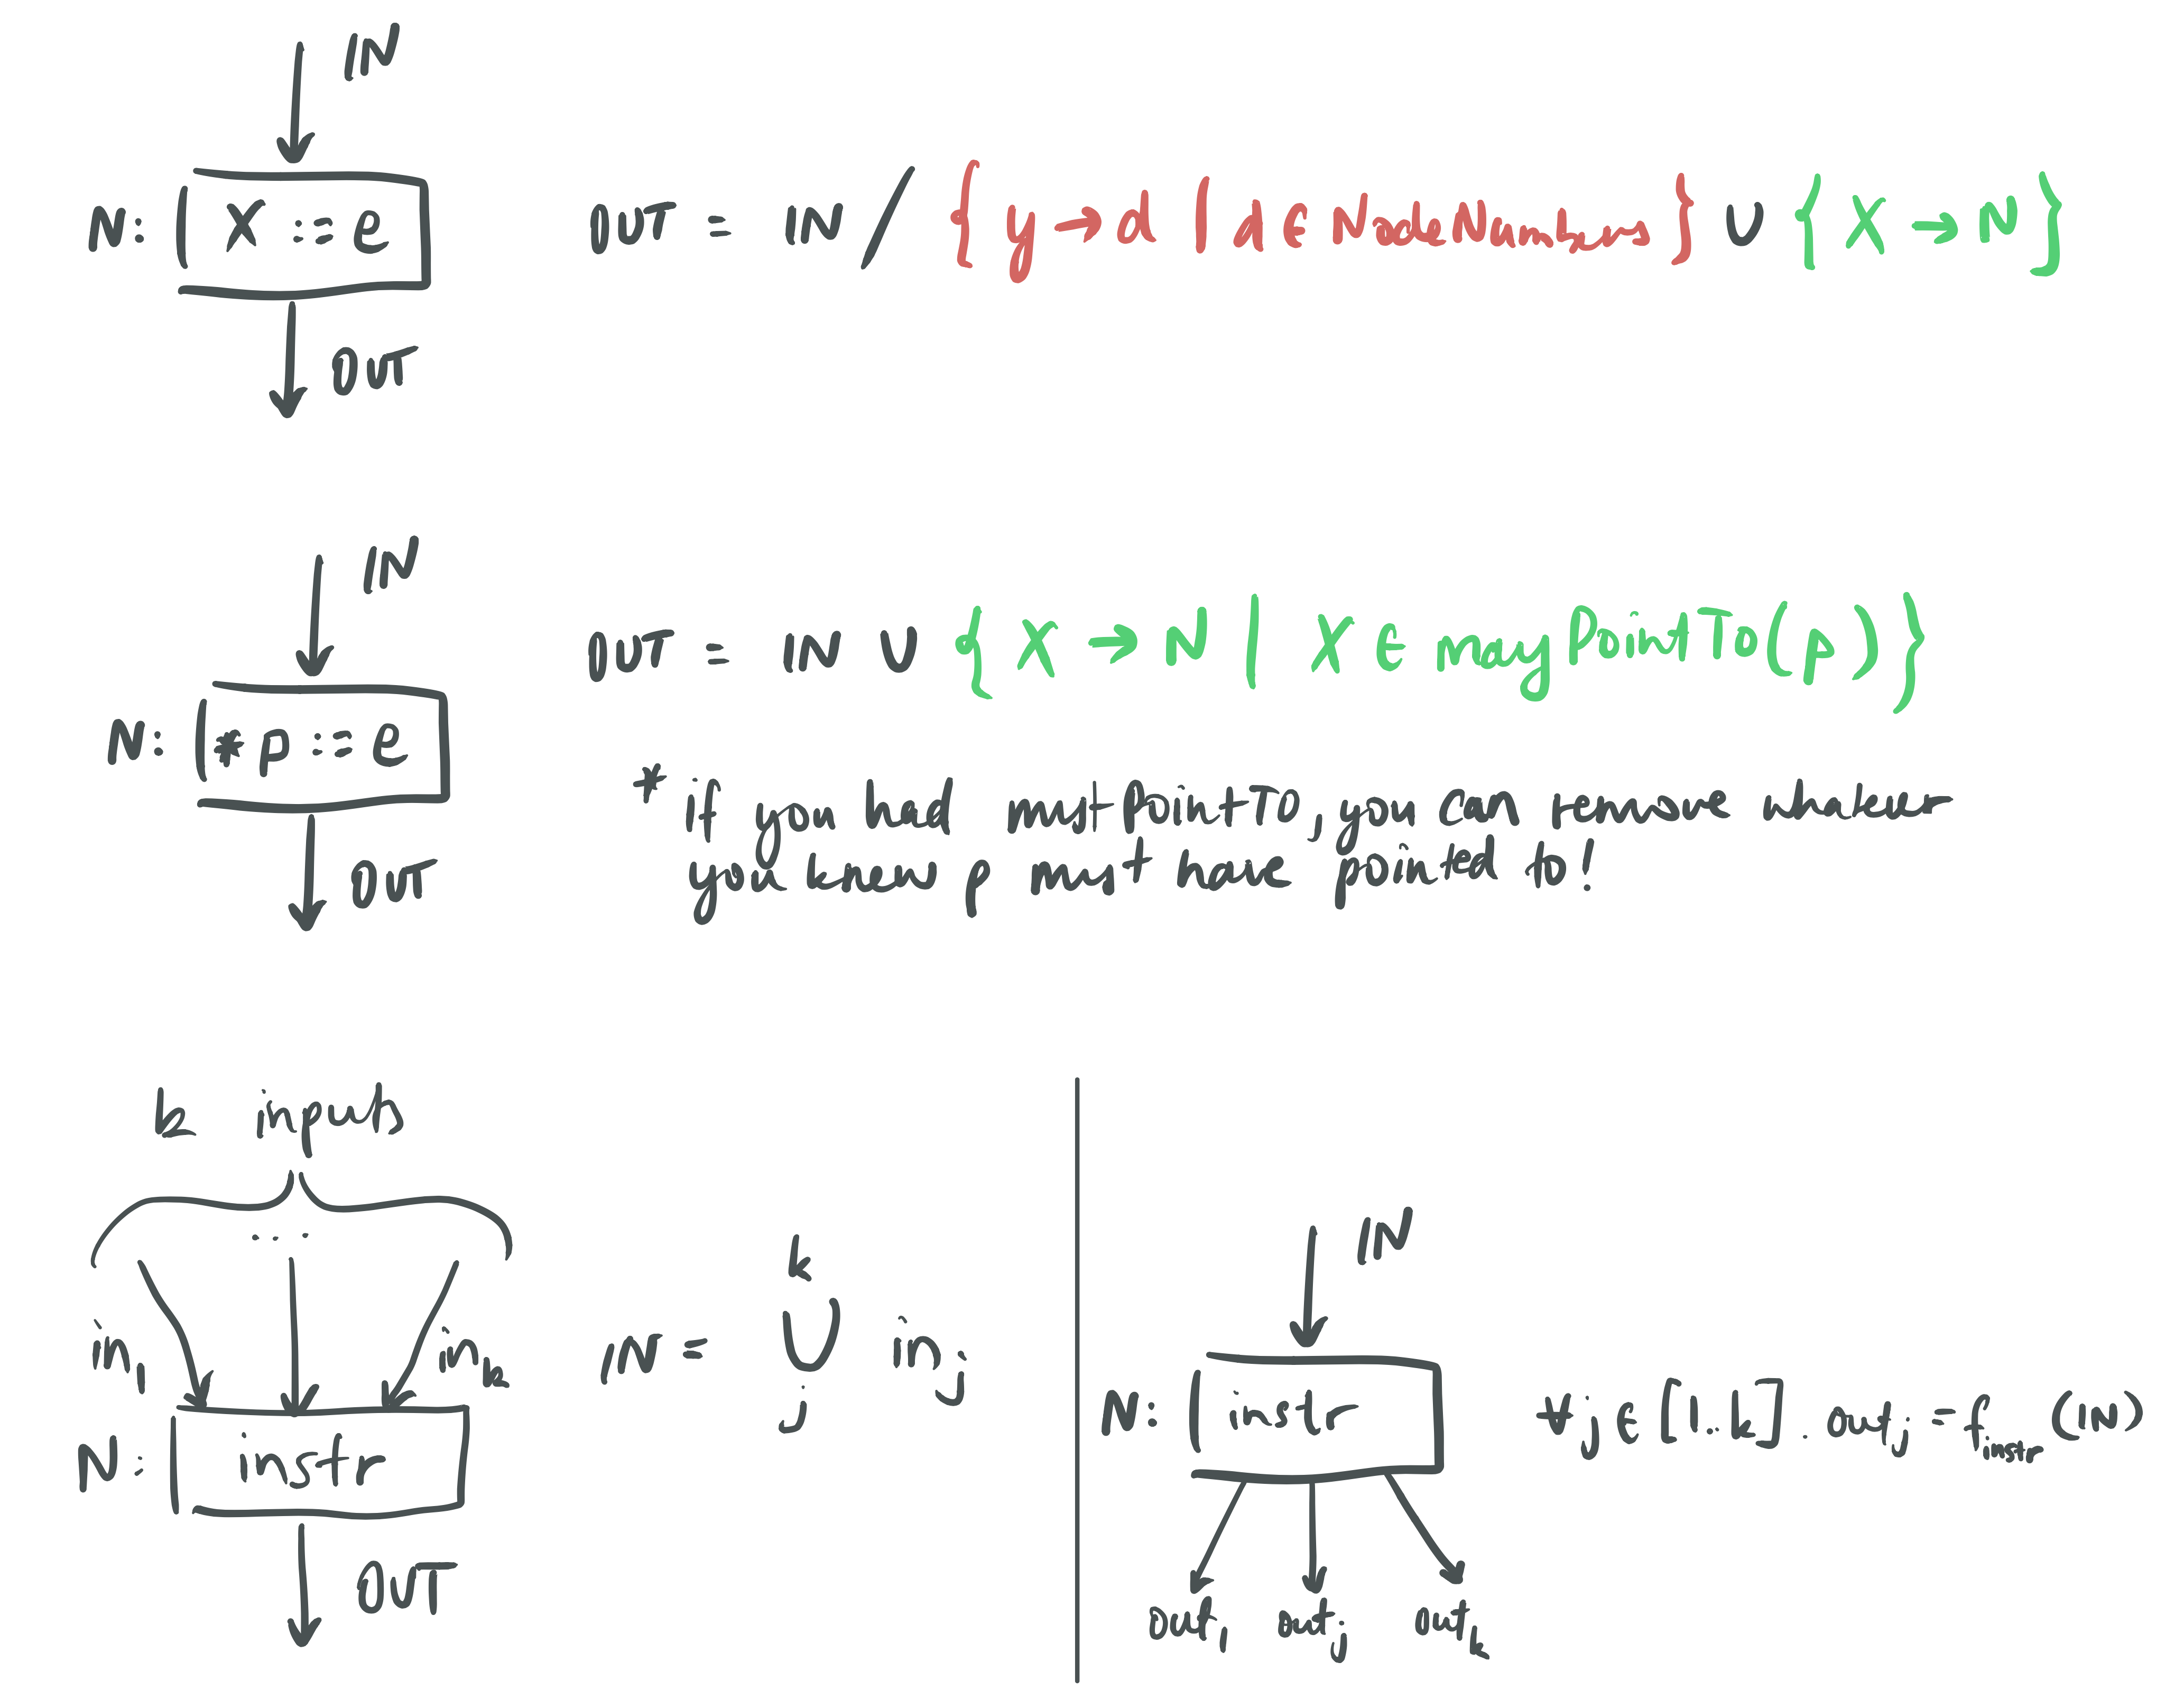 IN
N: X := e
OUT = IN / { y → d | d ∈ NodeNambers } ∪ { X → N }
OUT
IN
OUT = IN ∪ { X → N | X ∈ mayPointTo(p) }
N: *p := e
* if you had mustPointTo, you can remove whatever
you know p must have pointed to!
OUT
k inputs
...
in₁ inₖ
IN = ⋃ⱼᵏ inⱼ
N: instr
OUT
IN
N: instr
∀j ∈ [1..k]. outⱼ = f_instr (IN)
out₁ outⱼ outₖ